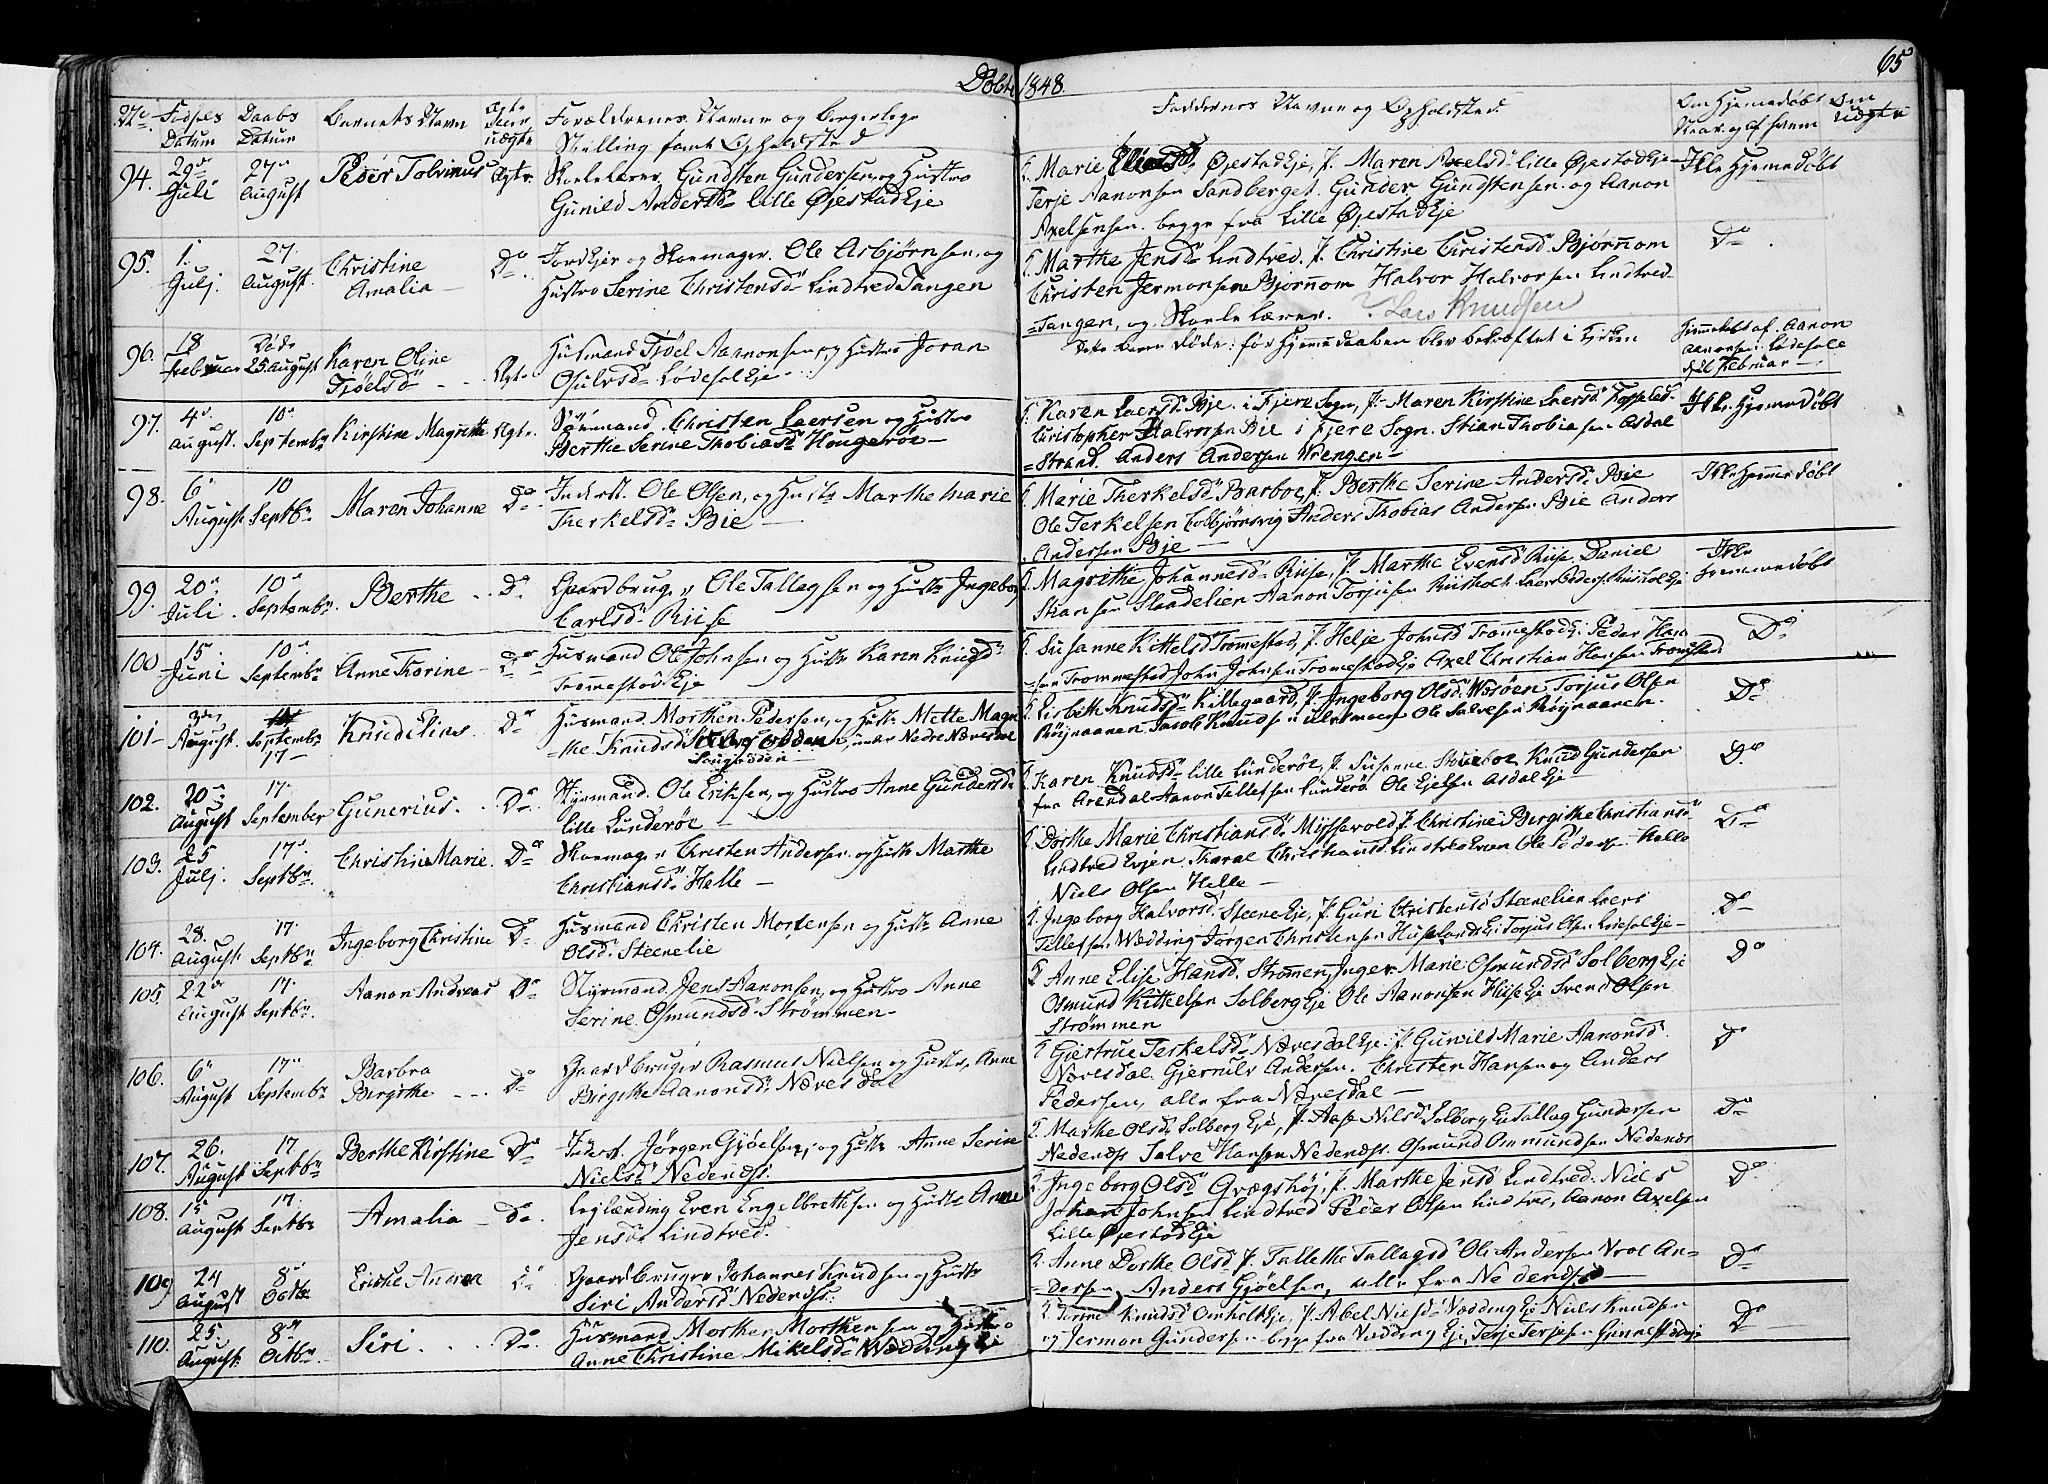 Døbte 1848.
65
No. Fødsels Datum
Daabs Datum
Barnets Navn
Ægte eller uægte
Forældrenes Navne og Borgerlige
Stilling samt Opholdsted
Faddernes Navne og Opholdsted.
Om Hjemmedøbt
Naar og af hvem
Om Uægte
94. 29de Juli
27de August
Peder Tobinius
Ægte.
Skolelærer Gundsten Gundersen og Hustro
Gunild Andersd. lille Øjestad Eje
Marie Øjestad Eje, P. Maren Axelsd. lille Øjestad Eje
Terje Aanonsen Sandberget. Gunder Gundstensen og Aanon
Axelsensen begge fra Lille Øjestad Eje
Ikke Hjemmedøbt
95. 1. Julj.
27. August.
Christine
Amalia
Do.
Jordejer og Skomager. Ole Asbjørnsen og
Hustro Serine Christensd. Lindtved Tangen
Marthe Jensd. Lindtved. P. Christine Christensd. Bjørnom
Christen Jermonsen Bjørnom Halvor Halvorsen Lindtved
Tangen, og Skolelærer. Lars Knudsen
Do.
96. 18 Februar
Døde 25 August
Karen Oline
Tjøelsd.
Ægte
Husmand Tjøel Aanonsen og Hustro Joran
Osulvsd. Lødesøl Eje
Dette Barn døde før Hjemmedaaben blev bekræftet i Kirken
Hjemmedøbt af Aanon
Aanonsen Lødesøl
Februar
97. 4de August.
10de September
Kirstine Magrethe
Ægte.
Sømand Christen Laersen og Hustro
Berthe Serine Thobiasd. Hougerøe
Karen Laersd. Bje i Fjere Sogn, P. Maren Kirstine Laersd.
Christopher Halvorsen Bie i Fjere Sogn. Stian Thobiasen Asdal
Strand. Anders Andersen Vrengen
Ikke Hjemmedøbt
98. 6te August
10 Septbr
Maren Johanne
Do.
Inderst. Ole Olsen, og Hustr. Marthe Marie
Therkelsd. Bie
Marie Therkelsd. Barboe, P. Berthe Serine Andersd. Bie
Ole Terkelsen Colbjørnsvig Anders Thobias Andersen Bie Anders
Andersen Bje
Ikke Hjemmedøbt
99. 20de Juli
10de Septembr.
Berthe
Do
Gaardbruger Ole Tallagsen og Hustr. Ingebor
Carlsd. Riise
Magrethe Johannesd. Riise, P. Marthe Evensd. Riise Daniel
Stiansen Slaadelien Aanon Torjusen Riisholt Laers Pedersen
Ikke
Hjemmedøbt
100 15. Juni
10de Septembr
Anne Thorine
Do
Husmand Ole Johnsen og Hustr Karen Knudsd.
Trommestad Eje
Susanne Kittelsd. Trommestad, P. Helje Johnsd. Trommestad Peder Han
sen Trommestad John Johnsen Trommestad Eje Axel Christian Hansen Tromestad
Do
101 3die August.
September
17
Knud Elias
Do
Husmand Morthen Pedersen og Hustr Mette Magre
the Knudsd. under Nedre Nævesdal
Lisbeth Knudsd. Killegaard, P. Ingeborg Olsd. Torjus Olsen
Røjnaanen Jacob Knudsen Ole Salvesen Røjnaanen
Do.
102. 20de August
17. September
Gunerius.
Do.
Styrmand. Ole Eriksen, og Hustro Anne Gundersd.
lille Lunderøe
Karen Knudsd. lille Lunderøe, P. Susanne Knud Gundersen
fra Arendal Aanon Tellefsen Lunderø Ole Ejelsen Asdal Eje
Do.
103. 25 Julj.
17de Septbr.
Christine Marie.
Do
Skomager Christen Andersen og Hustr Marthe
Christiansd. Helle
Dorthe Marie Christiansd. Myssevold, P. Christine Birgithe Christiansd.
Lindtved Tharal Christians Lindtved Ole Pedersen Helle
Niels Olsen Helle
Do
104. 28. August
17. Septbr.
Ingeborg Christine
Do
Husmand Christen Mortensen og Hustr Anne
Olsd. Steenelie
Ingeborg Halvorsd. Steene Eje, P. Guri Christensd Steenelien Laers
Tellefsen Wædding Jørgen Christensen Huseland Eje Torjus Olsen Lødesøl Eje
Do
105. 22de August
17. Septbr.
Aanon Andreas
Do
Styrmand Jens Aanonsen, og Hustro Anne
Serine Osmundsd. Strømmen
Anne Elise Hansd. Strømmen, Inger Marie Osmundsd Solberg Eje
Osmund Kittelsen Solberg Eje Ole Aanonsen Hiise Eje Svend Olsen
Strømmen
Do
106. 6te August
17de Septembr
Barbra
Birgithe
Do
Gaardbruger Rasmus Nielsen og Hustr. Anne
Birgithe Aanonsd. Nævesdal
Gjertrue Terkelsd. Nævesdal Eje. P. Gunild Marie Aanonsd.
Nævesdal. Andersen. Christen Hansen og Anders
Pedersen, alle fra Nævesdal
Do
107. 26. August
17 Septbr
Berthe Kirstine
Do
Inderst. Jörgen Gjöelsen og Hustr Anne Serine
Nielsd. Nedenæs.
Marthe Olsd. Solberg Eje, P. Aase Nilsd. Solberg Eje Tallag Gundersen
Nedenæs Salve Hansen Nedenæs. Osmund Ommundsen Nedenæs
Do
108. 15 August
17. Septbr
Amalia
Do.
Lejlænding Even Engelbrethsen og Hustr. Anne
Jensd. Lindtved.
Ingeborg Olsd. Grægshøj, P. Marthe Jensd. Lindtved. Niels
Johan Johnsen Lindtved Peder Olsen Lindtved, Aanon Axelsen
Lille Øjestad Eje
Do
109 24 August
8de Octbr
Andrea
Do
Gaardbruger Johannes Knudsen og Hustr.
Siri Andersd. Nedenæs.
Anne Dorthe Olsd. P. Tallethe Tallagsd. Ole Andersen An=
=dersen Anders Gjöelsen, alle fra Nedenæs
Do
110. 25. August.
8de Octbr.
Siri.
Do.
Husmand Morten Mortensen og Hustro
Anne Christine Mikelsd. Wædding Eje
Knudsd Omholt Eje, P. Abel Nielsd. Wædding Eje Niels Knudsen
og Jermon Gundersen begge fra Vædding Eje, Terje Terjesen Gunnestad Eje
Do